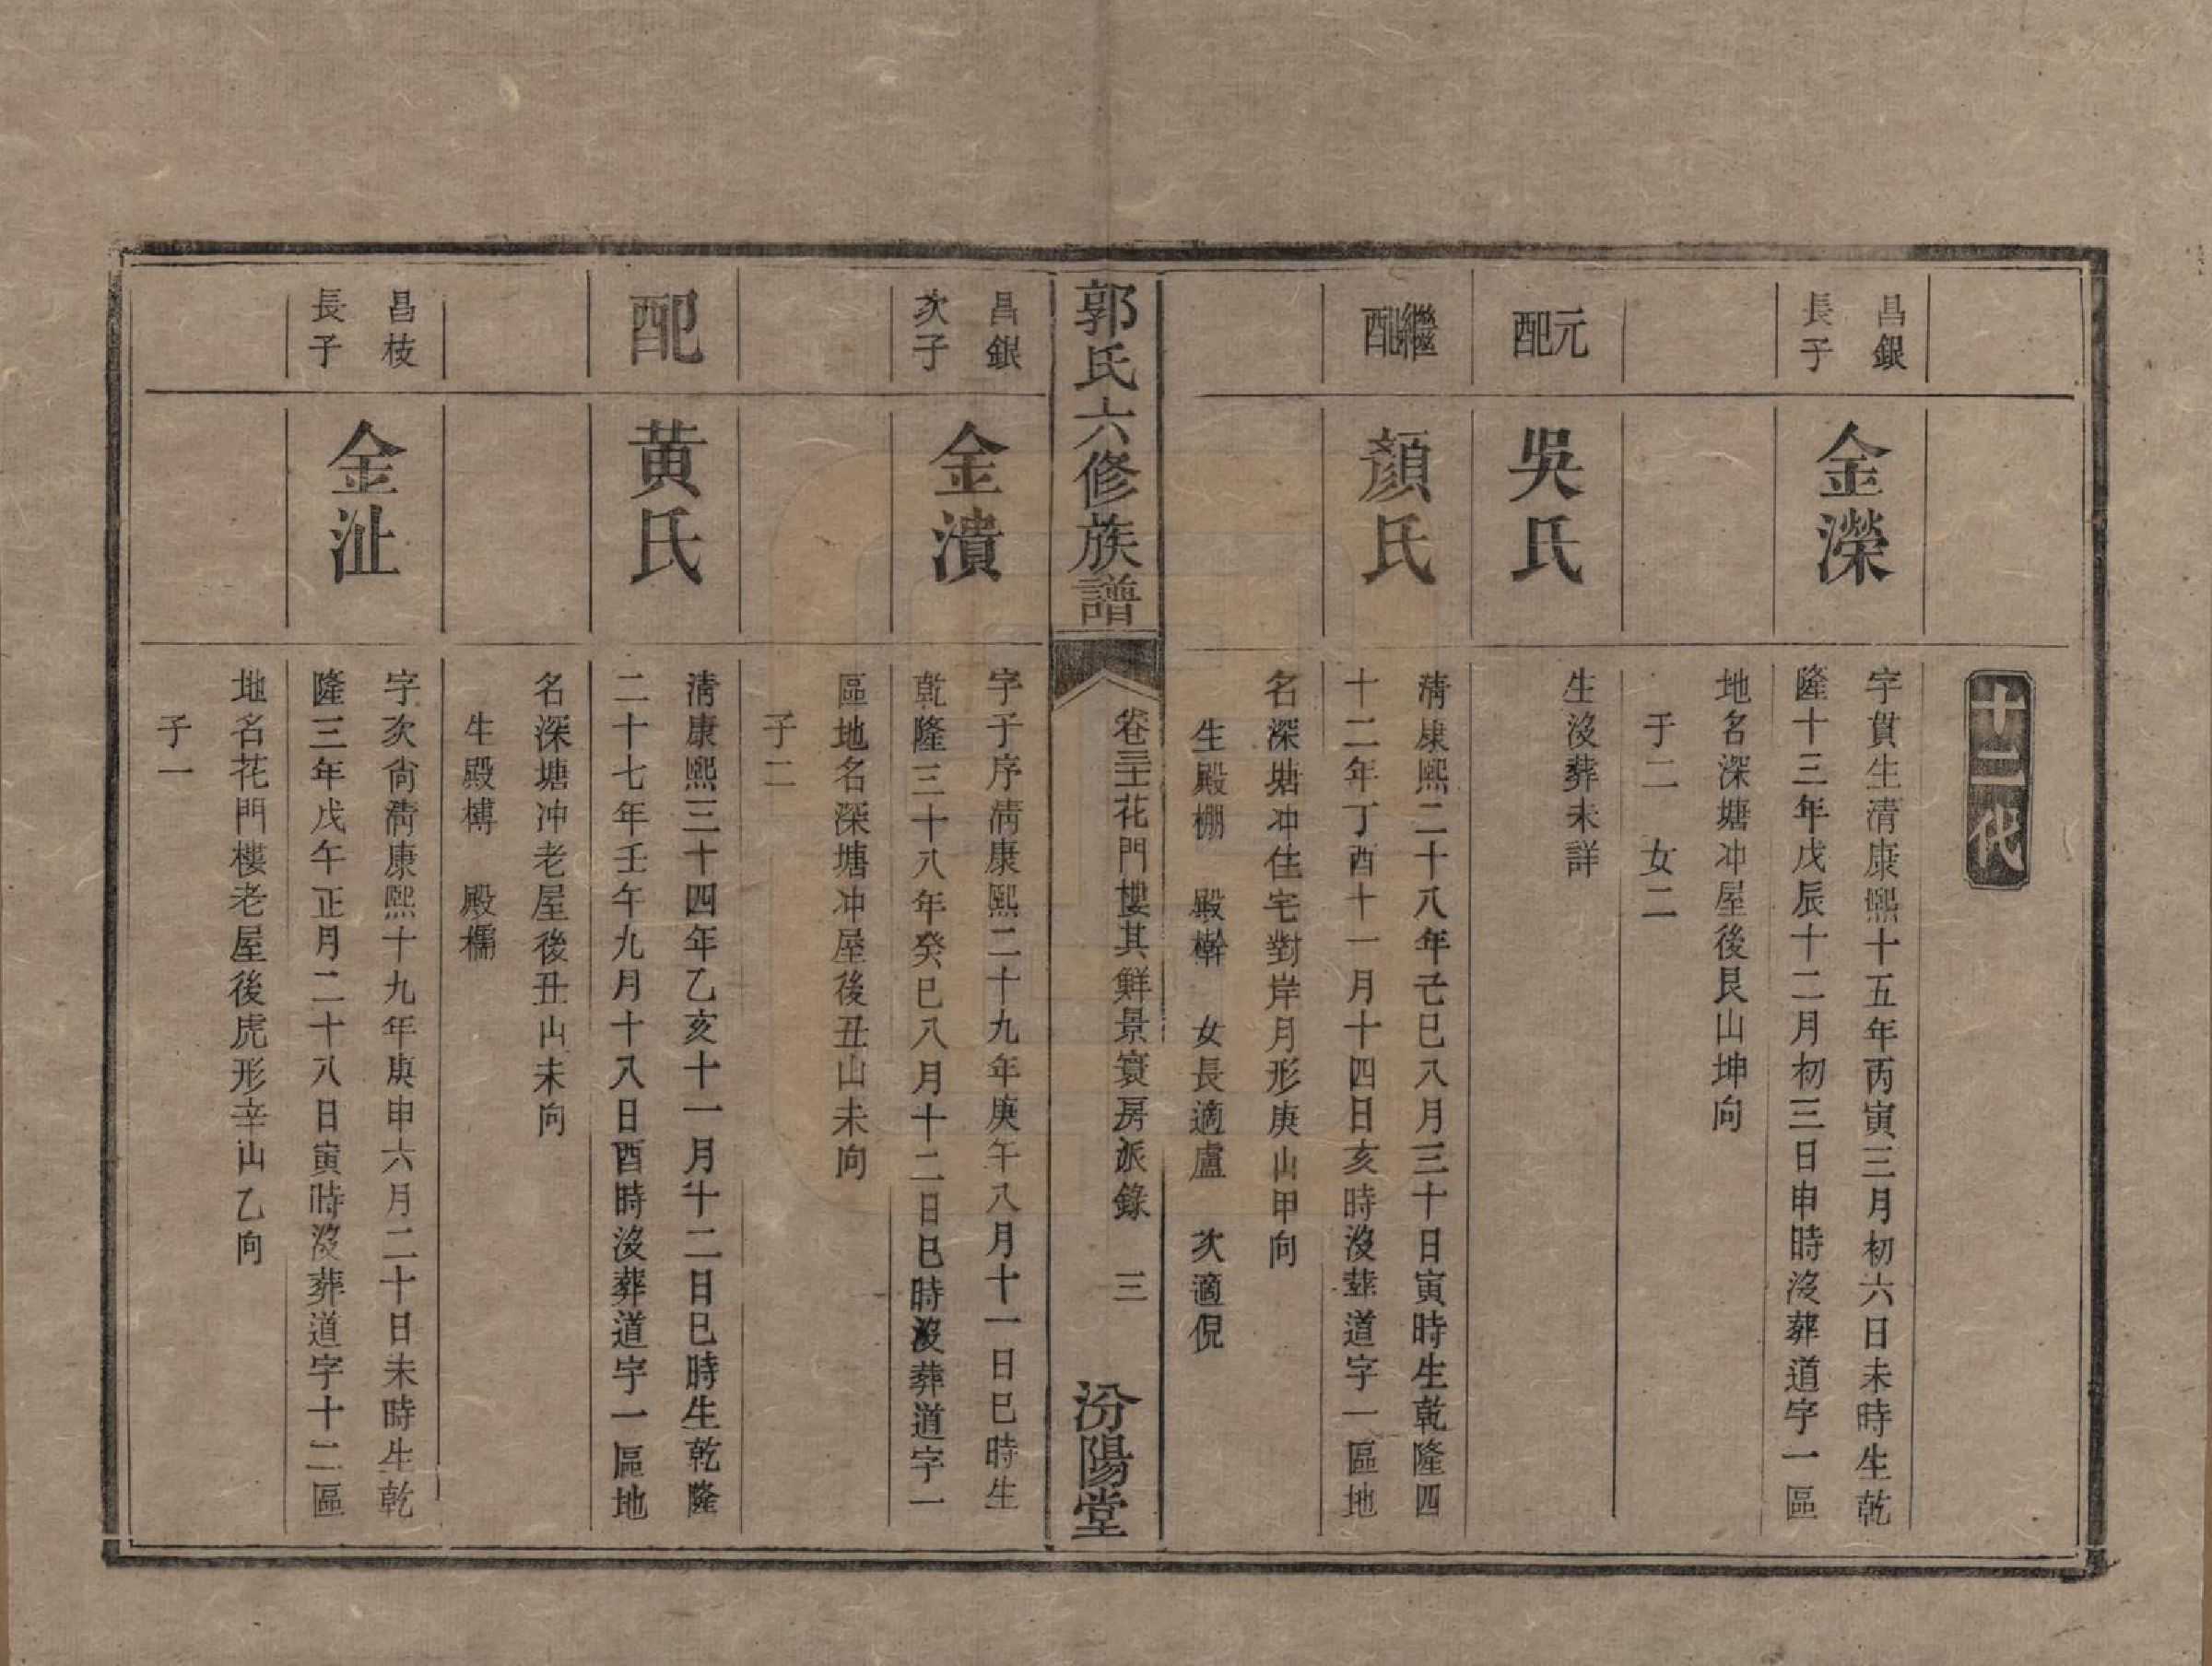 十二代
昌銀
長子
金濚
字貫生清康熙十五年丙寅三月初六日未時生乾
隆十三年戊辰十二月初三日申時沒葬道字一區
地名深塘冲屋後艮山坤向
子二　女二
元配
吳氏
生沒葬未詳
繼配
顏氏
清康熙二十八年己巳八月三十日寅時生乾隆四
十二年丁酉十一月十四日亥時沒葬道字一區地
名深塘冲住宅對岸月形庚山甲向
生殿棚　殿檊　女長適盧　次適倪
郭氏六修族譜
卷三十花門樓其鮮景寰房派錄　三
汾陽堂
昌銀
次子
金濆
字子序清康熙二十九年庚午八月十一日巳時生
乾隆三十八年癸巳八月十二日巳時沒葬道字一
區地名深塘冲屋後丑山未向
子二
配
黃氏
清康熙三十四年乙亥十一月十二日巳時生乾隆
二十七年壬午九月十八日酉時沒葬道字一區地
名深塘冲老屋後丑山未向
生殿榑　殿檽
昌枝
長子
金沚
字次尙清康熙十九年庚申六月二十日未時生乾
隆三年戊午正月二十八日寅時沒葬道字十二區
地名花門樓老屋後虎形辛山乙向
子一